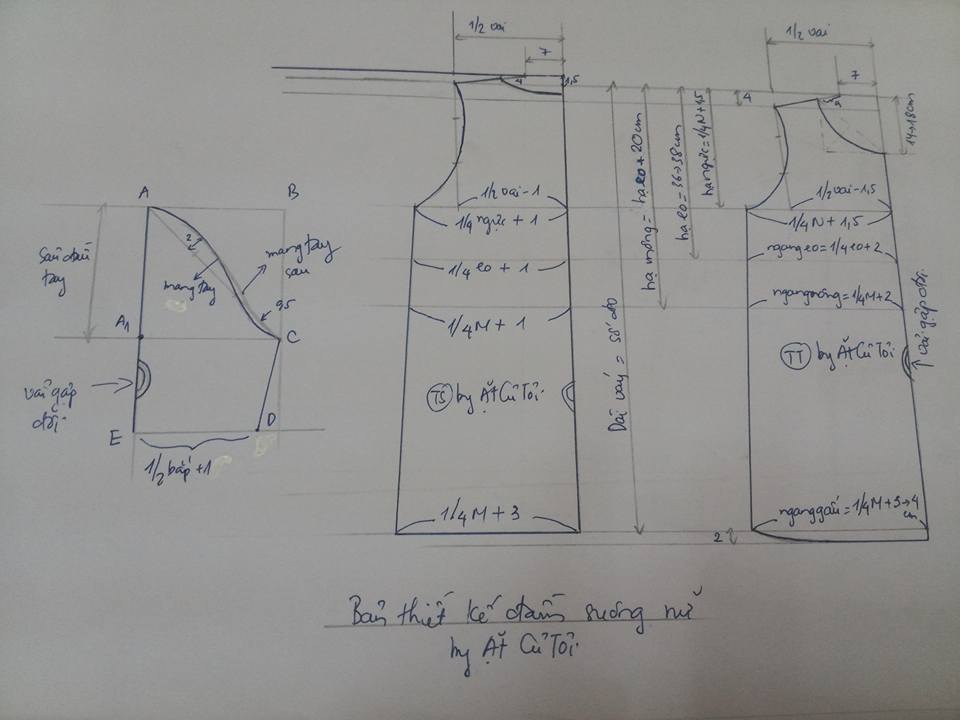 A
B
Sâu đầu tay
2
mang tay
mang tay sau
0,5
A1
C
vải gấp đôi
E
D
1/2 bắp +1
1/2 vai
7
4
1,5
1/2 vai - 1
1/4 ngực + 1
1/4 eo + 1
1/4 M + 1
TS by Ặt Củ Tỏi
1/4 M + 3
Dài váy = số đo
hạ mông = hạ eo + 20cm
hạ eo = 36→38cm
hạ ngực = 1/4N + 1,5
1/2 vai
7
4
14→18cm
1/2 vai - 1,5
1/4 N + 1,5
ngang eo = 1/4 eo + 2
ngang mông = 1/4 M + 2
TT by Ặt Củ Tỏi
vải gấp đôi
ngang gấu = 1/4 M + 3→4 cm
2
Bản thiết kế đầm suông nữ
by Ặt Củ Tỏi